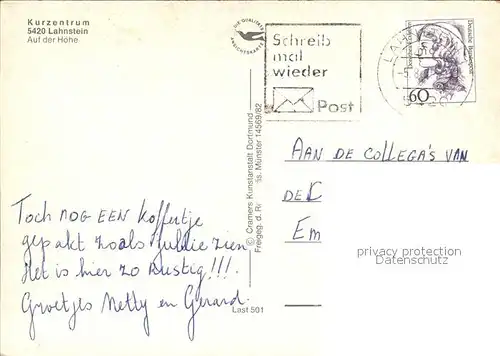 Kurzentrum
5420 Lahnstein
Auf der Höhe
DIE QUALITÄTS
ANSICHTSKARTE
Schreib
mal
wieder
Post
LAHNSTEIN
Deutsche Bundespost
60
© Cramers Kunstanstalt Dortmund
Freigeg. d. Münster 14569/82
AAN DE COLLEGA'S VAN
DE
Em
privacy protection
Datenschutz
Toch NOG EEN koffertje
gepakt zoals jullie zien
Het is hier zo Rustig!!!
Groetjes Netty en Gerard.
Last 501